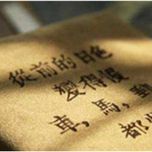 從前的日色
變得慢
車，馬，郵
都